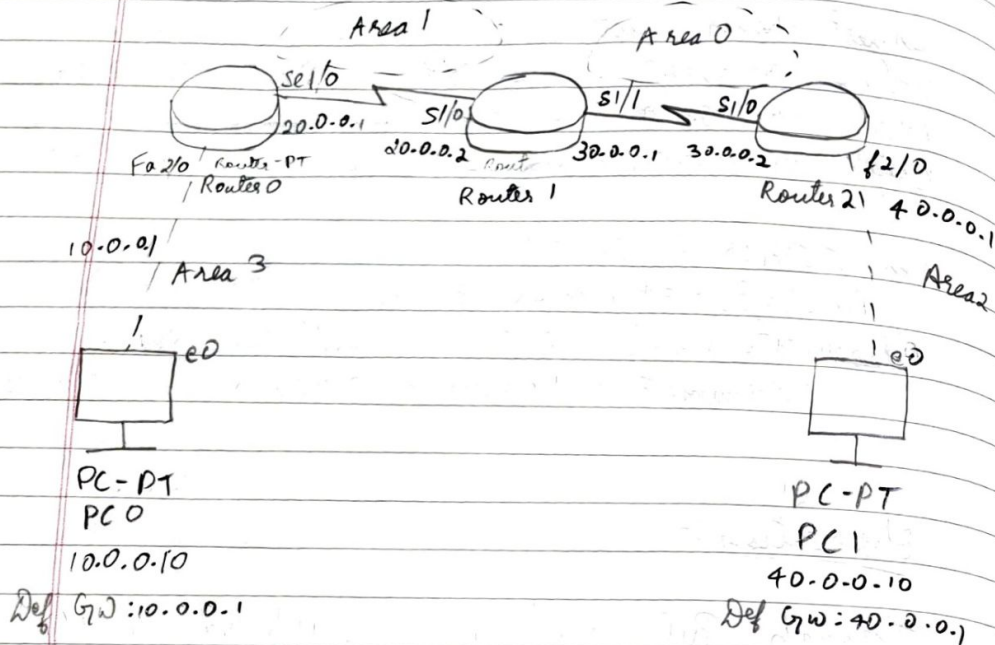 Area 1
Area 0
Se1/0
20.0.0.1
Fa2/0
Router-PT
Router 0
S1/0
20.0.0.2
Router 1
S1/1
30.0.0.1
S1/0
30.0.0.2
Router 2
f2/0
40.0.0.1
10.0.0.1
Area 3
Area 2
e0
PC-PT
PC 0
10.0.0.10
Def GW : 10.0.0.1
e0
PC-PT
PC1
40.0.0.10
Def GW : 40.0.0.1